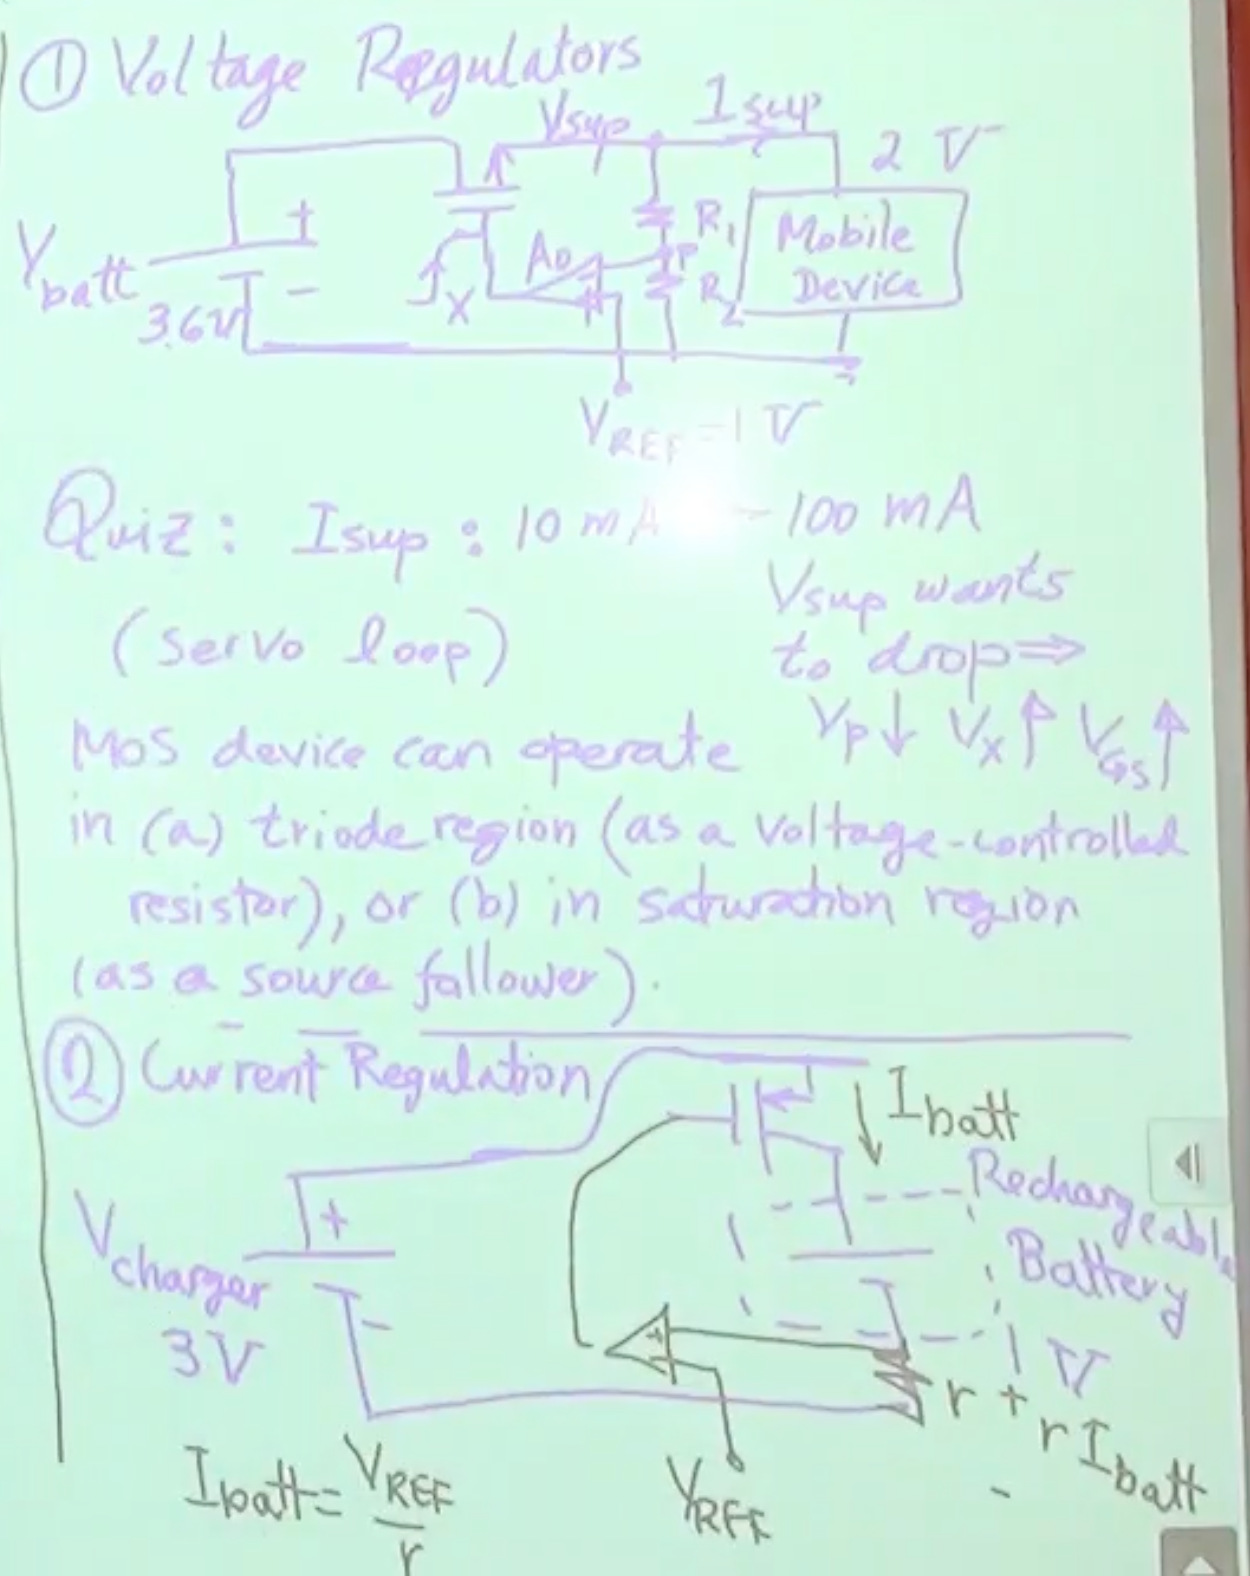 ① Voltage Regulators
Vsup Isup
2 V
Vbatt
+
-
3.6V
A0
X
R1
P
R2
Mobile
Device
VREF = 1 V
Quiz: Isup: 10 mA - 100 mA
Vsup wants
(servo loop) to drop ⇒
VP↓ VX↑ VGS↑
MOS device can operate
in (a) triode region (as a voltage-controlled
resistor), or (b) in saturation region
(as a source follower).
② Current Regulation
Ibatt
Rechargeable
Battery
Vcharger
3V
+
-
+
-
1 V
r +
r Ibatt
-
VREF
Ibatt = VREF
r